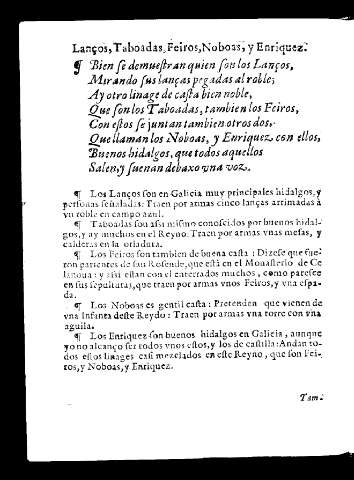 Lanços, Taboadas, Feiros, Noboas, y Enriquez.
¶ Bien se demuestran quien son los Lanços,
Mirando sus lanças pegadas al roble;
Ay otro linage de casta bien noble,
Que son los Taboadas, tambien los Feiros,
Con estos se juntan tambien otros dos,
Que llaman los Noboas, y Enriquez con ellos,
Buenos hidalgos, que todos aquellos
Salen, y suenan debaxo vna voz.
¶ Los Lanços son en Galicia muy principales hidalgos, y
personas señaladas: Traen por armas cinco lanças arrimadas à
vn roble en campo azul.
¶ Taboadas son assi mismo conoscidos por buenos hidal-
gos, y ay muchos en el Reyno. Traen por armas vnas mesas, y
calderas en la orladura.
¶ Los Feiros son tambien de buena casta: Dizese que fue-
ron parientes de san Rosende, que està en el Monasterio de Ce
lanoua: y assi estan con el enterrados muchos, como paresce
en sus sepulturas, que traen por armas vnos Feiros, y vna espa-
da.
¶ Los Noboas es gentil casta: Pretenden que vienen de
vna Infanta deste Reydo: Traen por armas vna torre con vna
aguila.
¶ Los Enriquez son buenos hidalgos en Galicia, aunque
yo no alcanço ser todos vnos estos, y los de castilla: Andan to-
dos estos linages casi mezclados en este Reyno, que son Fei-
ros, y Noboas, y Enriquez.
Tam-